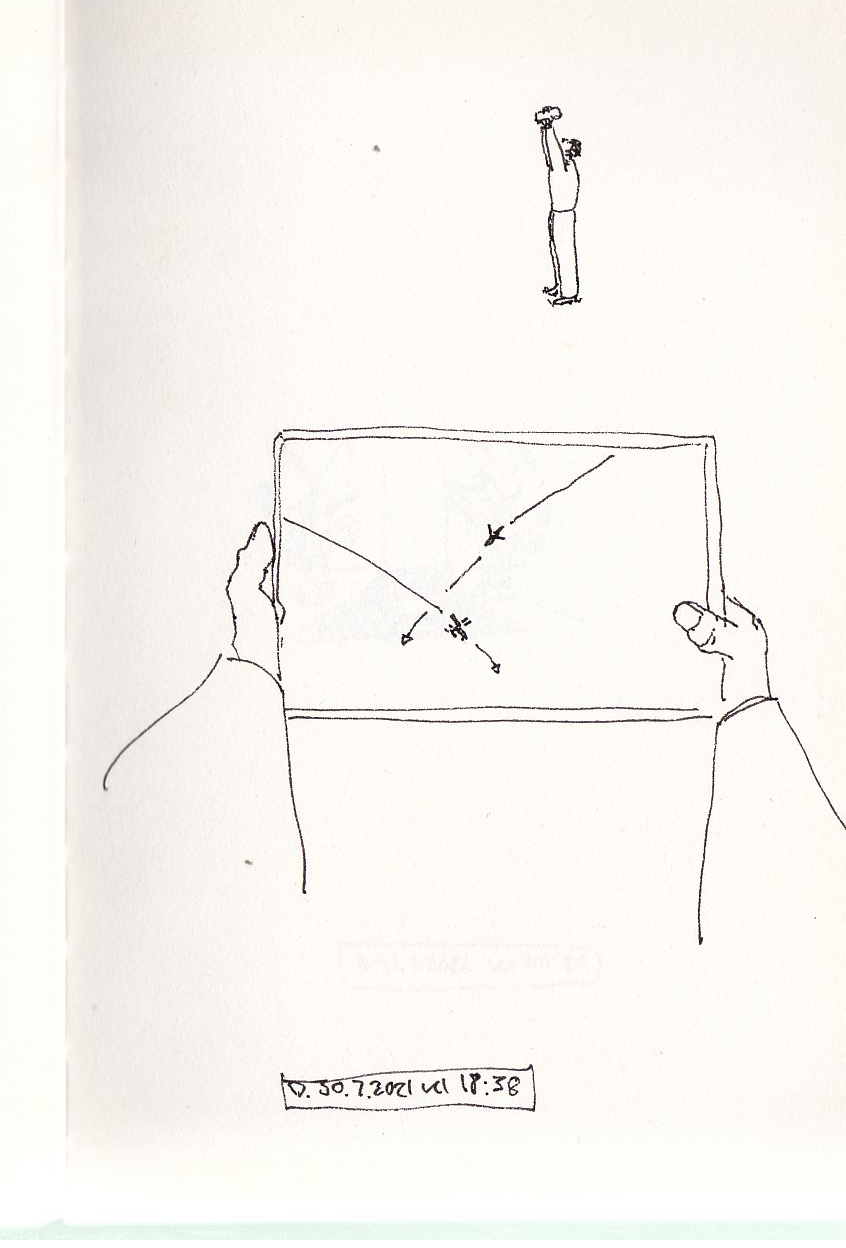 D. 30.7.2021 kl 18:38